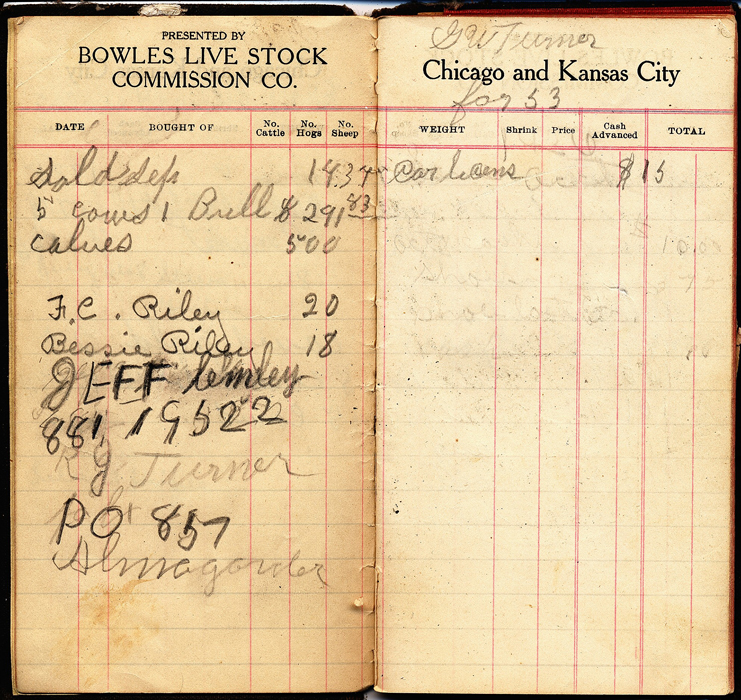 PRESENTED BY
BOWLES LIVE STOCK
COMMISSION CO.
DATE BOUGHT OF No. Cattle No. Hogs No. Sheep
Sold
5 cows 1 Bull $ 291 83
calves 500
F.C. Riley 20
Bessie Riley 18
JEFF lemley
881, 19522
R J Turner
PO 857
Almagorder
GW Turner
Chicago and Kansas City
for 53
WEIGHT Shrink Price Cash Advanced TOTAL
Car licens $15